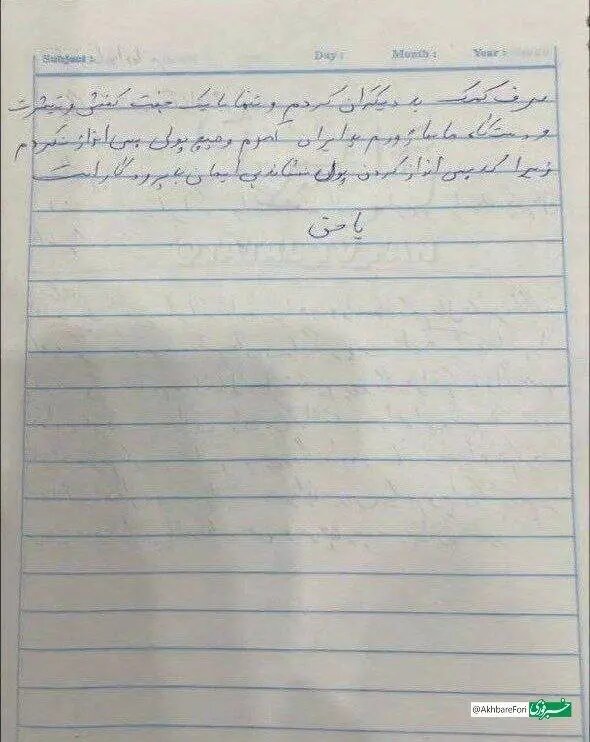 Subject : Day : Month : Year :
صرف کمک به دیگران کردم و تنها با یک جفت کفش و تیشرت
و دستگاه ماساژورم به ایران آمدم و هیچ پولی پس انداز نکردم
زیرا که پس انداز کردن پول نشانه بی ایمان به پروردگار است
یا حق
@AkhbareFori خبرفوری